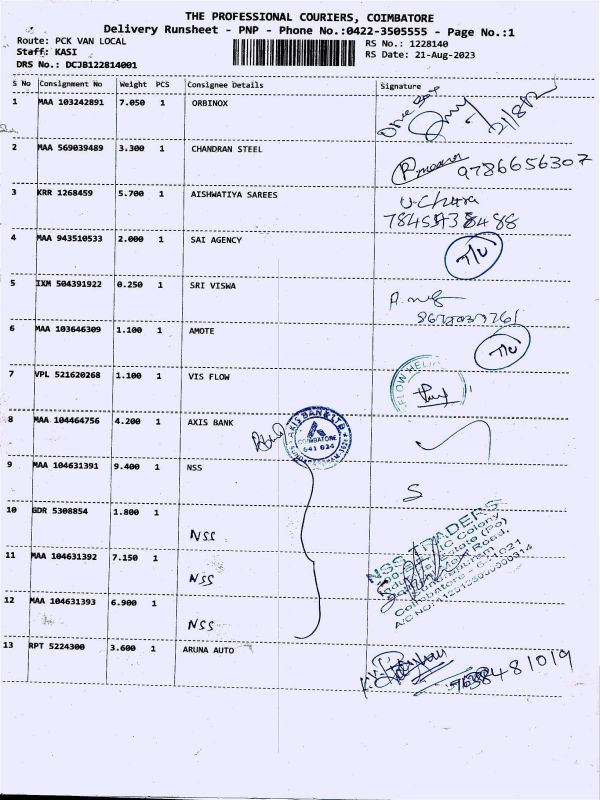 THE PROFESSIONAL COURIERS, COIMBATORE
Delivery Runsheet - PNP - Phone No.:0422-3505555 - Page No.:1
Route: PCK VAN LOCAL
RS No.: 1228140
Staff: KASI
RS Date: 21-Aug-2023
DRS No.: DCJB122814001
S No Consignment No Weight PCS Consignee Details Signature
1 MAA 103242891 7.050 1 ORBINOX
2 MAA 569039489 3.300 1 CHANDRAN STEEL 9786656307
3 KRR 1268459 5.700 1 AISHWATIYA SAREES
4 MAA 943510533 2.000 1 SAI AGENCY T/U
5 IXM 504391922 0.250 1 SRI VISWA
6 MAA 103646309 1.100 1 AMOTE T/U
7 VPL 521620268 1.100 1 VIS FLOW
8 MAA 104464756 4.200 1 AXIS BANK
AXIS BANK LTD
COIMBATORE
641 024
9 MAA 104631391 9.400 1 NSS
10 GDR 5308854 1.800 1 NSS
NSS TRADERS
11 MAA 104631392 7.150 1 NSS
12 MAA 104631393 6.900 1 NSS
13 RPT 5224300 3.600 1 ARUNA AUTO